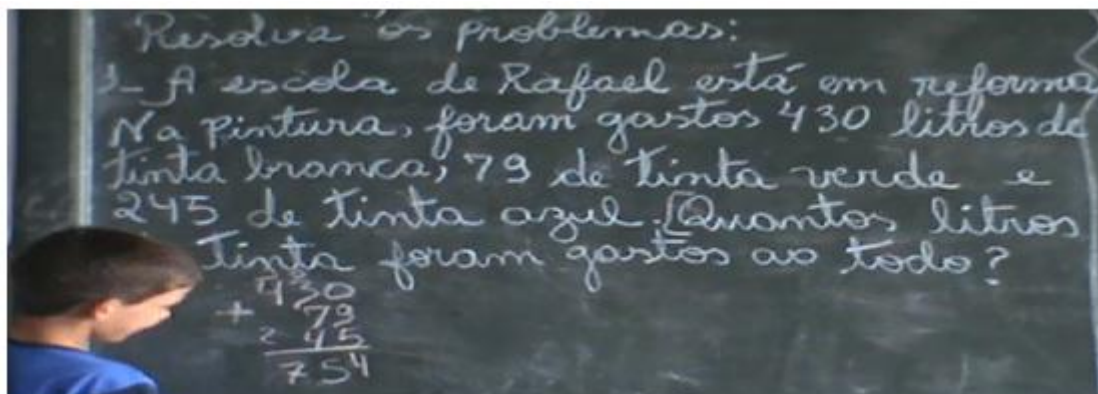 Resolva os problemas:
1- A escola de Rafael está em reforma
Na pintura, foram gastos 430 litros de
tinta branca, 79 de tinta verde e
245 de tinta azul. [Quantos litros
tinta foram gastos ao todo?
430
+ 79
245
754